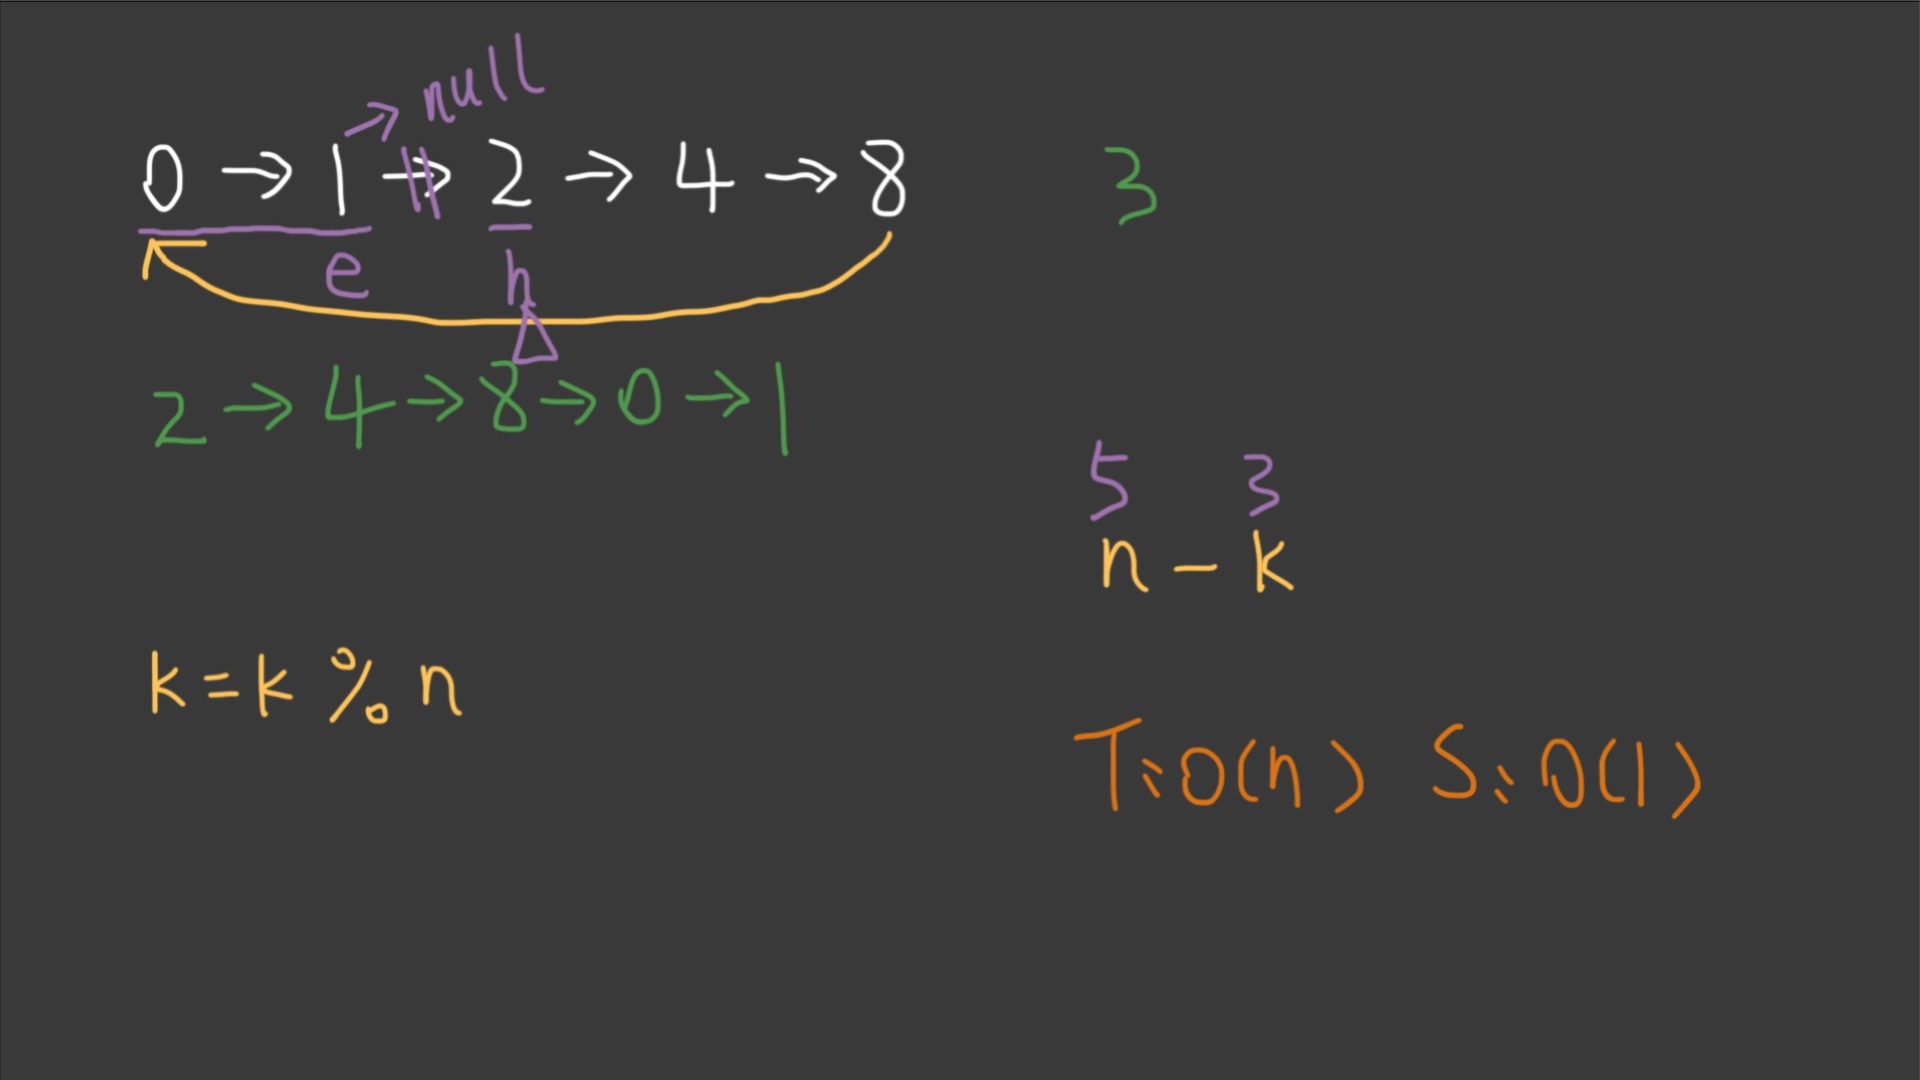 null
0 → 1 → 2 → 4 → 8 3
e h
2 → 4 → 8 → 0 → 1
5 3
n - k
k = k % n
T: O(n) S: O(1)